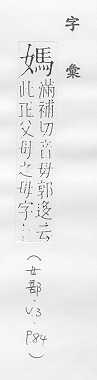 字彙
媽滿補切音母郭逸云
此正父母之母字
(女部·V.3·P.84)